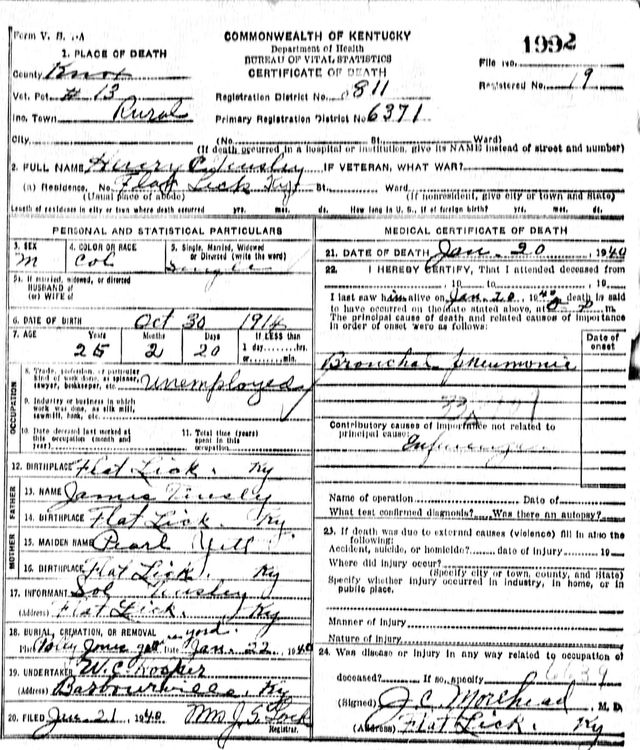 COMMONWEALTH OF KENTUCKY
Department of Health
BUREAU OF VITAL STATISTICS
CERTIFICATE OF DEATH
1992
Form V. S.
1. PLACE OF DEATH
County Knox
Vot. Pct. # 13
Inc. Town Rural
City
File No.
Registered No. 19
Registration District No. 811
Primary Registration District No. 6371
(No. St. Ward)
(If death occurred in a hospital or institution, give its NAME instead of street and number)
2. FULL NAME Henry C Tinsley IF VETERAN, WHAT WAR?
(a) Residence. No. Flat Lick Ky St. Ward.
(Usual place of abode) (If nonresident, give city or town and State)
Length of residence in city or town where death occurred yrs. mos. ds. How long in U. S., if of foreign birth? yrs. mos. ds.
PERSONAL AND STATISTICAL PARTICULARS
3. SEX 4. COLOR OR RACE 5. Single, Married, Widowed or Divorced (write the word)
M Col Single
5a. If married, widowed, or divorced
HUSBAND of
(or) WIFE of
6. DATE OF BIRTH Oct 30 1914
7. AGE Years Months Days If LESS than
25 2 20 1 day, hrs.
or min.
OCCUPATION
8. Trade, profession, or particular
kind of work done, as spinner,
sawyer, bookkeeper, etc. Unemployed
9. Industry or business in which
work was done, as silk mill,
sawmill, bank, etc.
10. Date deceased last worked at
this occupation (month and
year)
11. Total time (years)
spent in this
occupation
12. BIRTHPLACE Flat Lick. Ky
FATHER
13. NAME James Tinsley
14. BIRTHPLACE Flat Lick. Ky
MOTHER
15. MAIDEN NAME Pearl
16. BIRTHPLACE Flat Lick. Ky
17. INFORMANT Sol Tinsley
(Address) Flat Lick. Ky
18. BURIAL, CREMATION, OR REMOVAL
Place Jones Date Jan. 22, 1940
19. UNDERTAKER W. C. Hooper
(Address) Barbourville, Ky
20. FILED 21 1940 Mrs J. G.
Registrar.
MEDICAL CERTIFICATE OF DEATH
21. DATE OF DEATH Jan. 20 1940
22. I HEREBY CERTIFY, That I attended deceased from
, 19 to , 19
I last saw him alive on Jan. 20, 1940 death is said
to have occurred on the date stated above, at m
The principal cause of death and related causes of importance
in order of onset were as follows:
Date of onset
Bronchal pneumonia
Contributory causes of importance not related to
principal cause:
Influenza
Name of operation Date of
What test confirmed diagnosis? Was there an autopsy?
23. If death was due to external causes (violence) fill in also the
following:
Accident, suicide, or homicide? date of injury 19
Where did injury occur?
(Specify city or town, county, and State)
Specify whether injury occurred in industry, in home, or in
public place.
Manner of injury
Nature of injury
24. Was disease or injury in any way related to occupation of
deceased? If so, specify
(Signed) J. C. Morehead, M. D.
(Address) Flat Lick. Ky